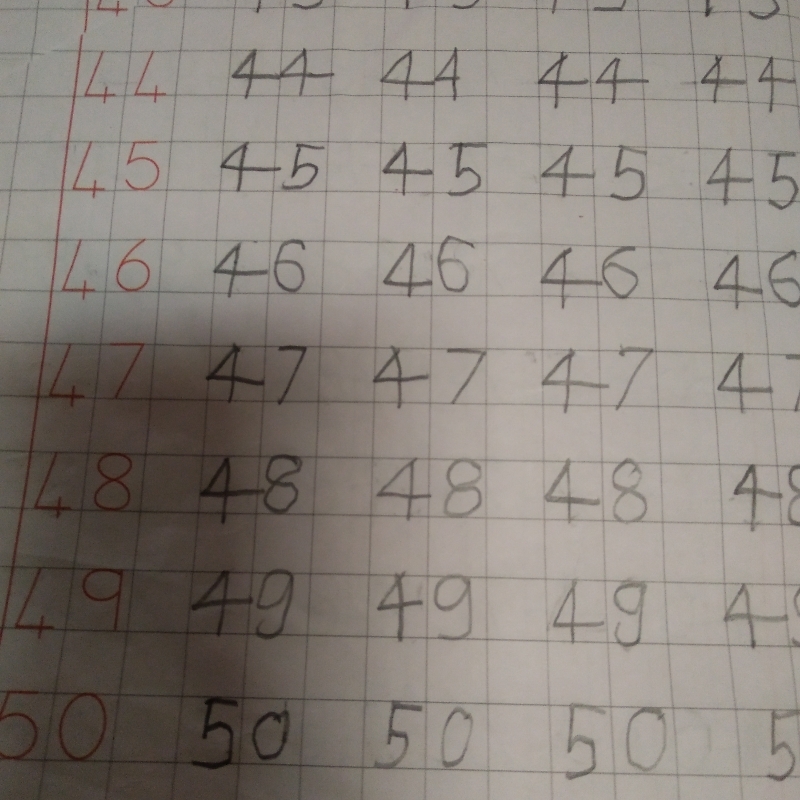 44 44 44 44 44
45 45 45 45 45
46 46 46 46 46
47 47 47 47 47
48 48 48 48 48
49 49 49 49 49
50 50 50 50 5